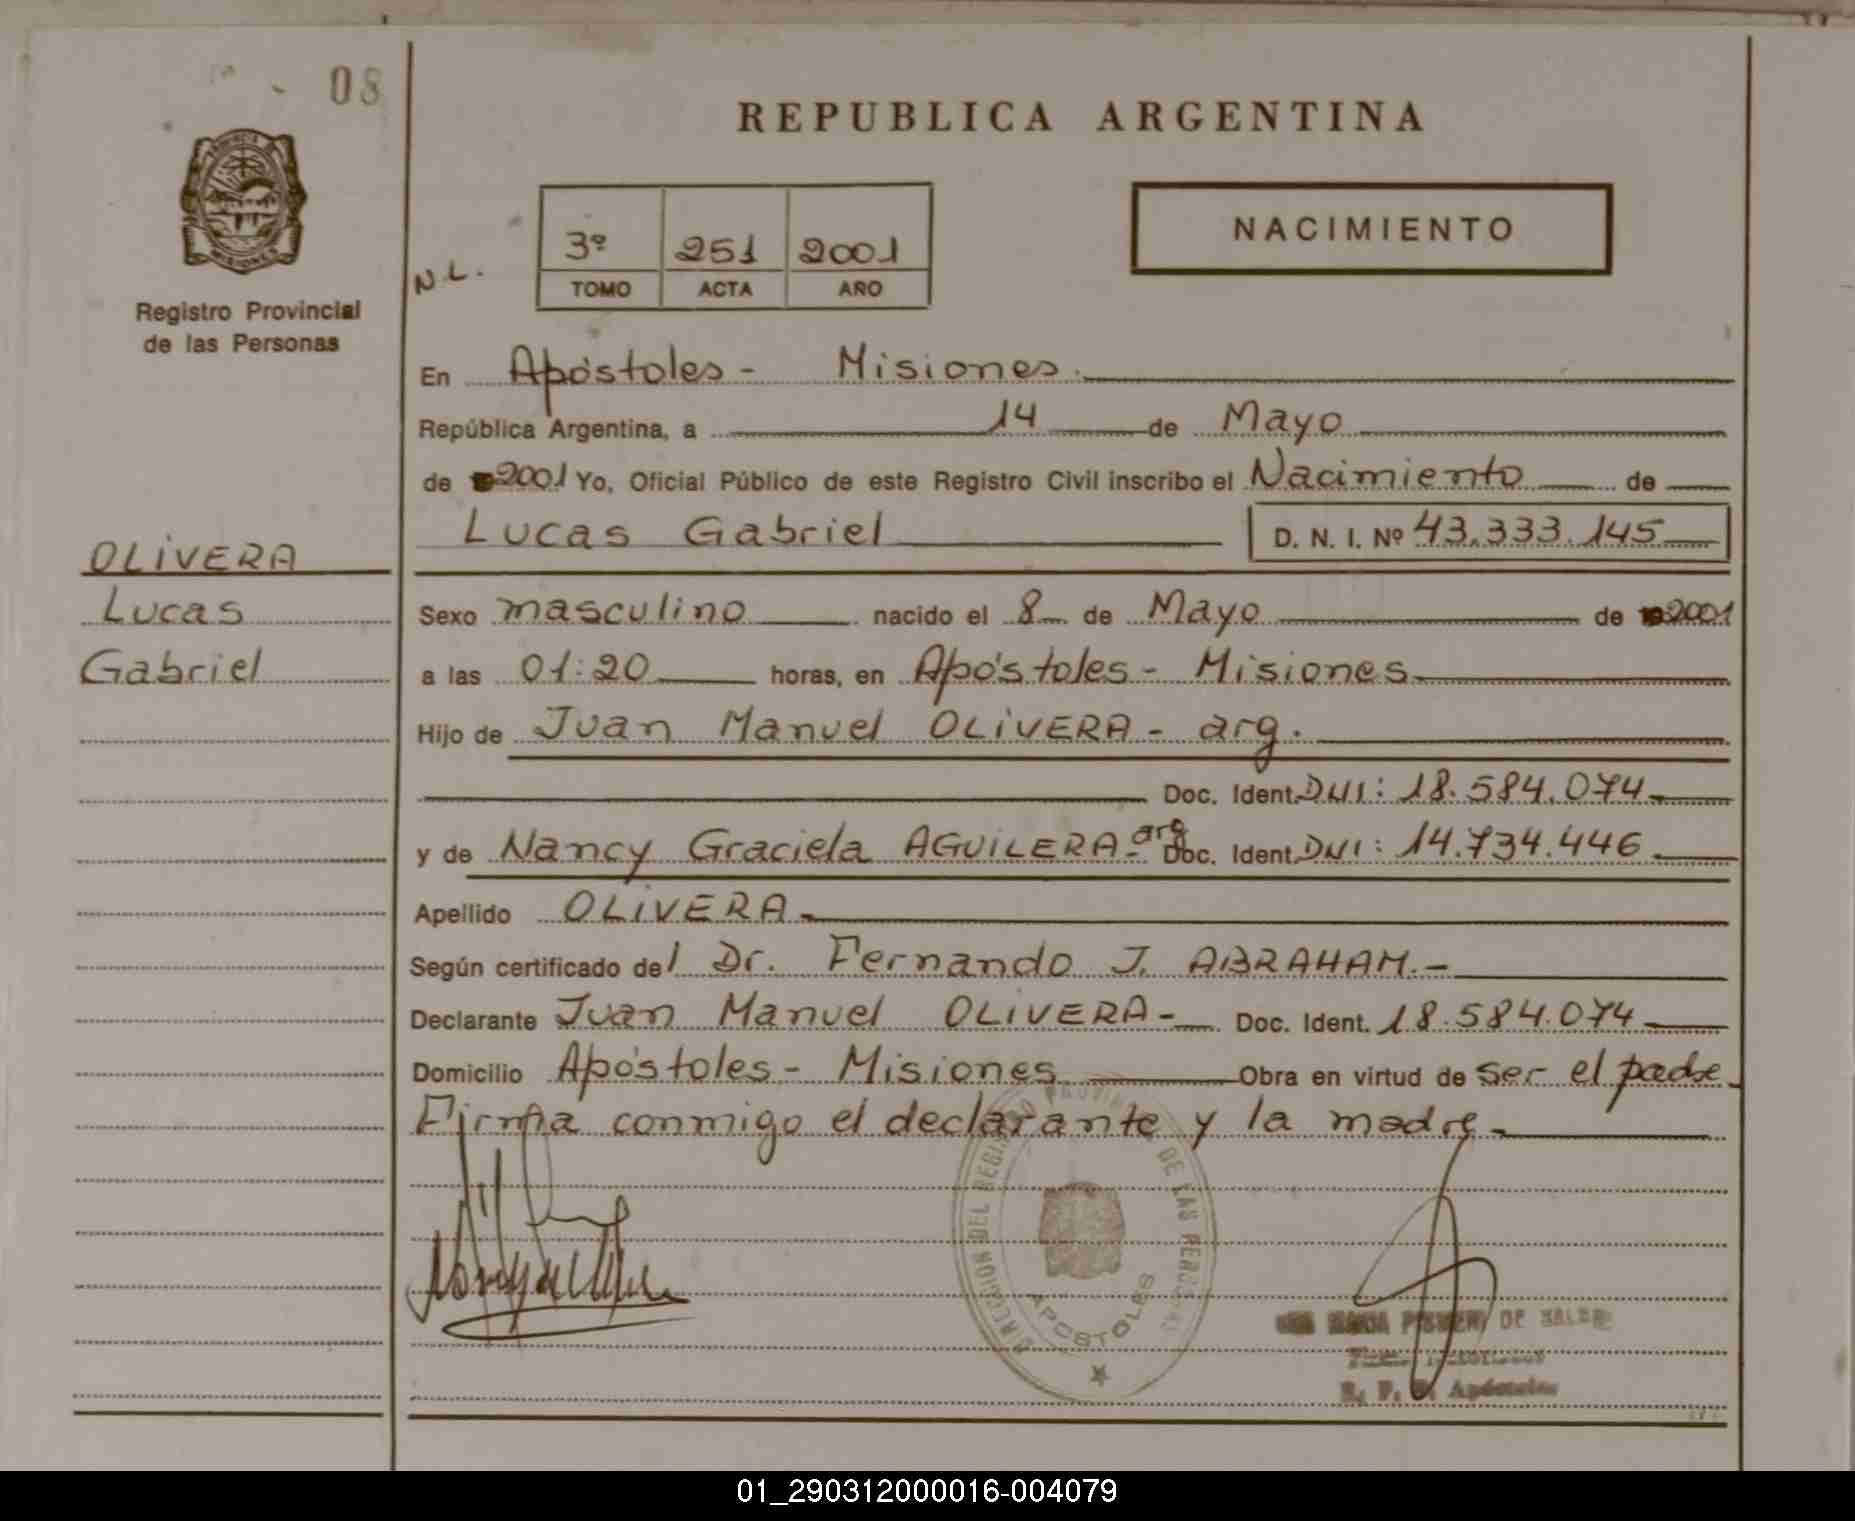 08
REPUBLICA ARGENTINA
NACIMIENTO
3º 251 2001
TOMO ACTA AÑO
N.L.
MISIONES
Registro Provincial
de las Personas
En Apóstoles - Misiones.
República Argentina, a 14 de Mayo
de 2001 Yo, Oficial Público de este Registro Civil inscribo el Nacimiento de
Lucas Gabriel D. N. I. Nº 43.333.145
OLIVERA
Lucas
Gabriel
Sexo masculino nacido el 8 de Mayo de 2001
a las 01:20 horas, en Apóstoles - Misiones
Hijo de Juan Manuel OLIVERA - arg.
Doc. Ident. DNI: 18.584.074
y de Nancy Graciela AGUILERA - arg Doc. Ident. DNI: 14.734.446
Apellido OLIVERA
Según certificado del Dr. Fernando J. ABRAHAM. -
Declarante Juan Manuel OLIVERA - Doc. Ident. 18.584.074
Domicilio Apóstoles - Misiones Obra en virtud de ser el padre
Firma conmigo el declarante y la madre
DIRECCION DEL REGISTRO PROVINCIAL DE LAS PERSONAS
APOSTOLES
MARIA DE
R. P. P. Apóstoles
01_290312000016-004079